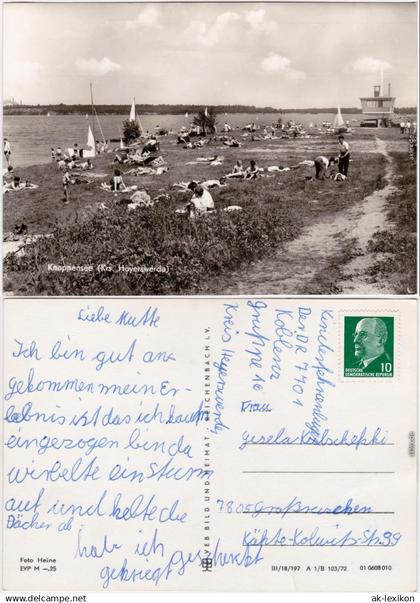 Knappensee (Krs. Hoyerswerda)
Liebe Mutte
Ich bin gut an
gekommen mein Er-
lebnis ist das ich kaum
eingezogen bin da
wirbelte ein Sturm
auf und holte die
Dächer ab.
hab ich
gekriegt
Foto Heine
EVP M –.25
VEB BILD UND HEIMAT REICHENBACH I. V.
Kinderferienlager
Der DR 7701
Koblenz
Gruppe 16
Kreis Hoyerswerda
DEUTSCHE
DEMOKRATISCHE REPUBLIK
10
Frau
Gisela
7805 Großräschen
Käthe-Kollwitz-Str. 99
III/18/197 A 1/B 103/72 01 0608 010
ak-ansichtskarten.de
ak-lexikon.de